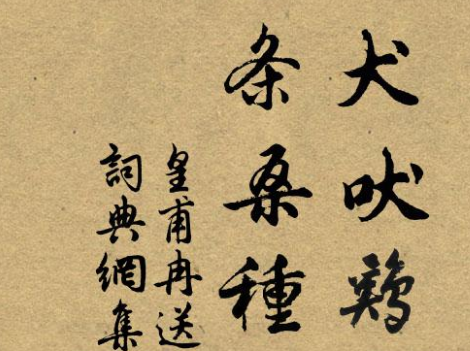 犬吠鷄
条桑種
皇甫冉送
詞典網集